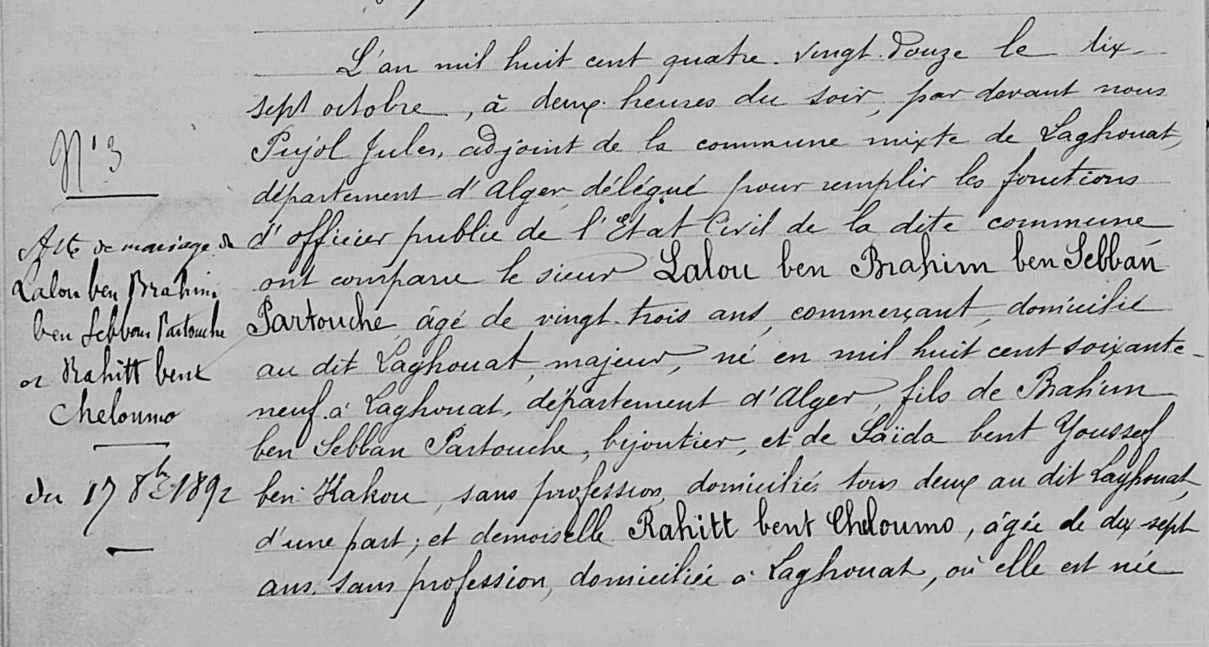 N° 3
Acte de mariage de
Lalou ben Brahim
ben Sebban Partouche
et Rahitt bent
Cheloumo
du 17 8bre 1892
L'an mil huit cent quatre-vingt-douze le dix-
sept octobre, à deux heures du soir, par devant nous
Pujol Jules, adjoint de la commune mixte de Laghouat,
département d'Alger, délégué pour remplir les fonctions
d'officier public de l'Etat Civil de la dite commune
ont comparu le sieur Lalou ben Brahim ben Sebban
Partouche, âgé de vingt-trois ans, commerçant, domicilié
au dit Laghouat, majeur, né en mil huit cent soixante-
neuf à Laghouat, département d'Alger, fils de Brahim
ben Sebban Partouche, bijoutier, et de Saïda bent Youssef
ben Kakou, sans profession, domiciliés tous deux au dit Laghouat,
d'une part; et demoiselle Rahitt bent Cheloumo, âgée de dix-sept
ans, sans profession, domiciliée à Laghouat, où elle est née